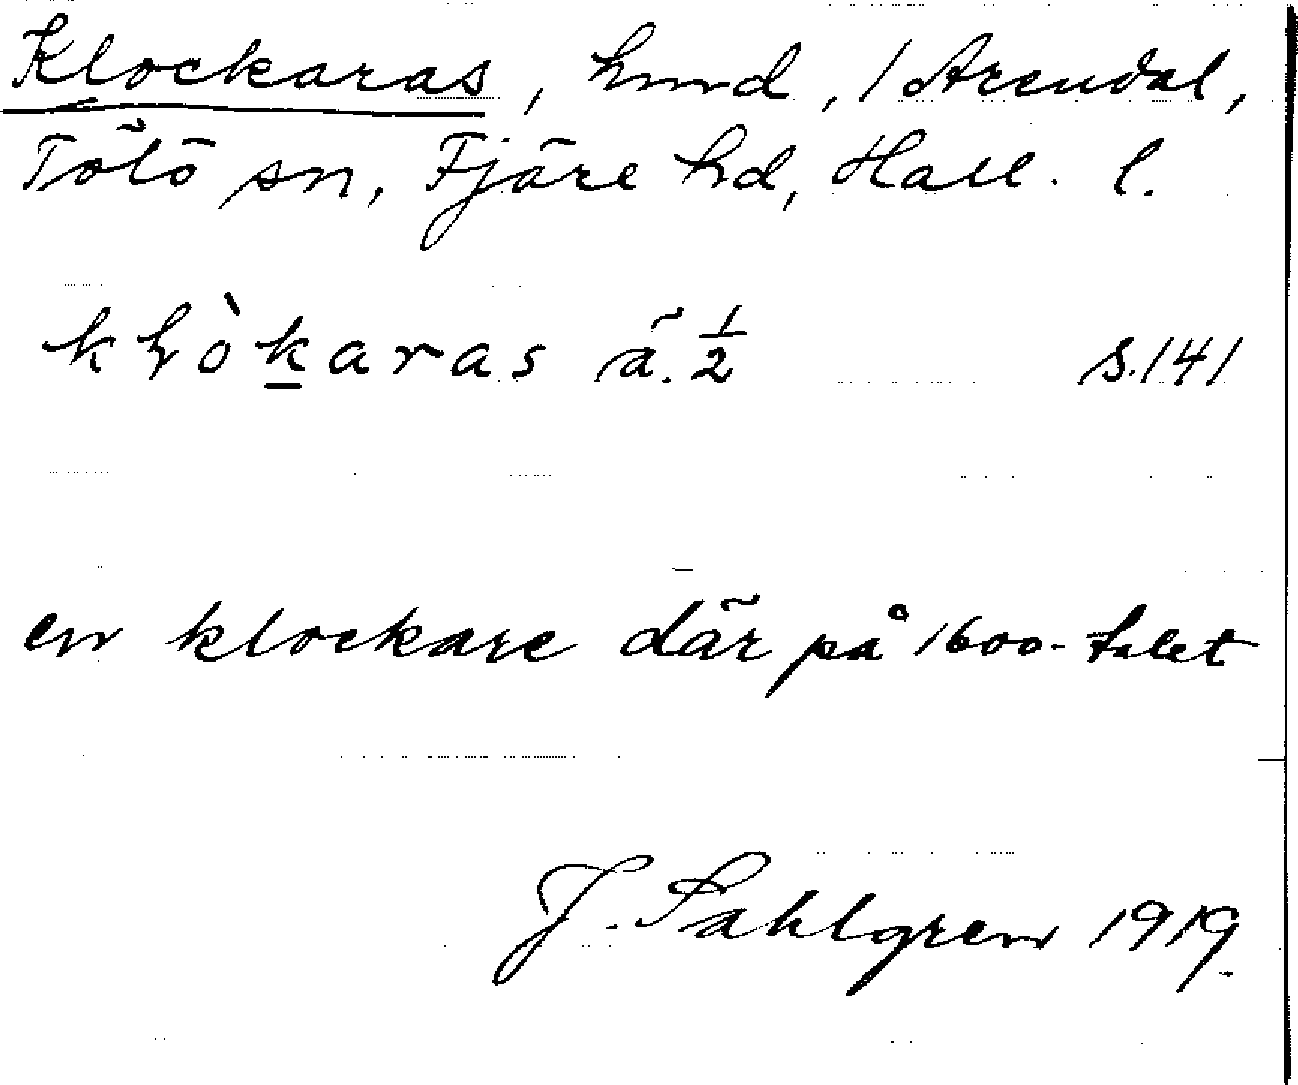 Klockaras, hmd, 1 Arendal,
Tölö sn, Fjäre hd, Hall. l.
kḷòkaras ä. 1/2 s. 141
en klockare där på 1600-talet
J. Sahlgren 1919